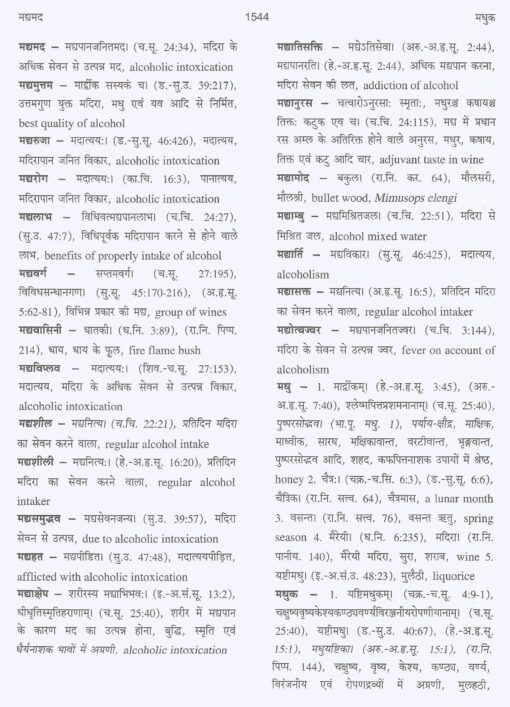 मद्यमद
1544
मधुक
मद्यमद – मद्यपानजनितमद। (च.सू. 24:34), मदिरा के
अधिक सेवन से उत्पन्न मद, alcoholic intoxication
मद्यमुत्तम – मार्द्वीक सस्यकं च। (ड.-सु.उ. 39:217),
उत्तमगुण युक्त मदिरा, मधु एवं यव आदि से निर्मित,
best quality of alcohol
मद्यरुजा – मदात्ययः। (ड.-सु.सू. 46:426), मदात्यय,
मदिरापान जनित विकार, alcoholic intoxication
मद्यरोग – मदात्ययः। (का.चि. 16:3), पानात्यय,
मदिरापान जनित विकार, alcoholic intoxication
मद्यलाभ – विधिवत्मद्यपानलाभ। (च.चि. 24:27),
(सु.उ. 47:7), विधिपूर्वक मदिरापान करने से होने वाले
लाभ, benefits of properly intake of alcohol
मद्यवर्ग – सप्तमवर्ग। (च.सू. 27:195),
विविधसन्धानगण। (सु.सू. 45:170-216), (अ.हृ.सू.
5:62-81), विभिन्न प्रकार की मद्य, group of wines
मद्यवासिनी – धातकी। (ध.नि. 3:89), (रा.नि. पिप्प.
214), धाय, धाय के फूल, fire flame bush
मद्यविप्लव – मदात्ययः। (शिव.-च.सू. 27:153),
मदात्यय, मदिरा के अधिक सेवन से उत्पन्न विकार,
alcoholic intoxication
मद्यशील – मद्यनित्य। (च.चि. 22:21), प्रतिदिन मदिरा
का सेवन करने वाला, regular alcohol intake
मद्यशीली – मद्यनित्यः। (हे.-अ.हृ.सू. 16:20), प्रतिदिन
मदिरा का सेवन करने वाला, regular alcohol
intaker
मद्यसमुद्भव – मद्यसेवनजन्य। (सु.उ. 39:57), मदिरा
सेवन से उत्पन्न, due to alcoholic intoxication
मद्यहत – मद्यपीडित। (सु.उ. 47:48), मदात्ययपीड़ित,
afflicted with alcoholic intoxication
मद्याक्षेप – शरीरस्य मद्याभिभवः। (इ.-अ.सं.सू. 13:2),
धीधृतिस्मृतिहराणाम्। (च.सू. 25:40), शरीर में मद्यपान
के कारण मद का उत्पन्न होना, बुद्धि, स्मृति एवं
धैर्यनाशक भावों में अग्रणी, alcoholic intoxication
मद्यातिसक्ति – मद्येऽतिसेवा। (अरु.-अ.हृ.सू. 2:44),
मद्यपानरति। (हे.-अ.हृ.सू. 2:44), अधिक मद्यपान करना,
मदिरा सेवन की लत, addiction of alcohol
मद्यानुरस – चत्वारोऽनुरसाः स्मृताः, मधुरश्च कषायश्च
तिक्तः कटुक एव च। (च.चि. 24:115), मद्य में प्रधान
रस अम्ल के अतिरिक्त होने वाले अनुरस, मधुर, कषाय,
तिक्त एवं कटु आदि चार, adjuvant taste in wine
मद्यामोद – बकुल। (रा.नि. कर. 64), मौलसरी,
मौलश्री, bullet wood, Mimusops elengi
मद्याम्बु – मद्यमिश्रितजल। (च.चि. 22:51), मदिरा से
मिश्रित जल, alcohol mixed water
मद्यार्ति – मद्यविकार। (सु.सू. 46:425), मदात्यय,
alcoholism
मद्यासक्त – मद्यनित्य। (अ.हृ.सू. 16:5), प्रतिदिन मदिरा
का सेवन करने वाला, regular alcohol intaker
मद्योत्थज्वर – मद्यपानजनितज्वर। (च.चि. 3:144),
मदिरा के सेवन से उत्पन्न ज्वर, fever on account of
alcoholism
मधु – 1. मार्द्वीकम्। (हे.-अ.हृ.सू. 3:45), (अरु.-
अ.हृ.सू. 7:40), श्लेष्मपित्तप्रशमनानाम्। (च.सू. 25:40),
पुष्परसोद्भव। (भा.पू. मधु. 1), पर्याय-क्षौद्र, माक्षिक,
माध्वीक, सारघ, मक्षिकावान्त, वरटीवान्त, भृङ्गवान्त,
पुष्परसोद्भव आदि, शहद, कफपित्तनाशक उपायों में श्रेष्ठ,
honey 2. चैत्रः। (चक्र.-च.सि. 6:3), (ड.-सु.सू. 6:6),
चैत्रिक। (रा.नि. सत्त्व. 64), चैत्रमास, a lunar month
3. वसन्त। (रा.नि. सत्त्व. 76), वसन्त ऋतु, spring
season 4. मैरेयी। (ध.नि. 6:235), मदिरा। (रा.नि.
पानीय. 140), मैरेयी मदिरा, सुरा, शराब, wine 5.
यष्टीमधु। (इ.-अ.सं.उ. 48:23), मुलैठी, liquorice
मधुक – 1. यष्टिमधुकम्। (चक्र.-च.सू. 4:9-1),
चक्षुष्यवृष्यकेश्यकण्ठ्यवर्ण्यविरञ्जनीयरोपणीयानाम्। (च.सू.
25:40), यष्टीमधु। (ड.-सु.उ. 40:67), (हे.-अ.हृ.सू.
15:1), मधुयष्टिका। (अरु.-अ.हृ.सू. 15:1), (रा.नि.
पिप्प. 144), चक्षुष्य, वृष्य, केश्य, कण्ठ्य, वर्ण्य,
विरंजनीय एवं रोपणद्रव्यों में अग्रणी, मुलहठी,